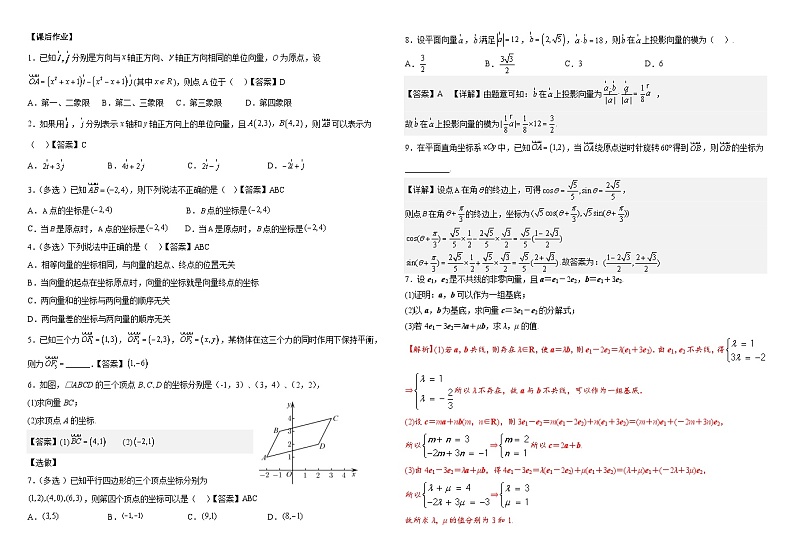 【课后作业】
1.已知i,j分别是方向与x轴正方向、y轴正方向相同的单位向量，O为原点，设
OA=(x²+x+1)i-(x²-x+1)j(其中x∈R)，则点A位于（ ）【答案】D
A．第一、二象限 B．第二、三象限 C．第三象限 D．第四象限
2．如果用i，j分别表示x轴和y轴正方向上的单位向量，且A(2,3)，B(4,2)，则AB可以表示为
（ ）【答案】C
A．2i+3j B．4i+2j C．2i-j D．-2i+j
3.（多选）已知AB=(-2,4)，则下列说法不正确的是（ ）【答案】ABC
A．A点的坐标是(-2,4) B．B点的坐标是(-2,4)
C．当B是原点时，A点的坐标是(-2,4) D．当A是原点时，B点的坐标是(-2,4)
4.（多选）下列说法中正确的是（ ）【答案】ABC
A．相等向量的坐标相同，与向量的起点、终点的位置无关
B．当向量的起点在坐标原点时，向量的坐标就是向量终点的坐标
C．两向量和的坐标与两向量的顺序无关
D．两向量差的坐标与两向量的顺序无关
5．已知三个力OF₁=(1,3)，OF₂=(-2,3)，OF₃=(x,y)，某物体在这三个力的同时作用下保持平衡，
则力OF₃=______．【答案】(1,-6)
6．如图，□ABCD的三个顶点B、C、D的坐标分别是(-1，3)、(3，4)、(2，2)，
(1)求向量BC；
(2)求顶点A的坐标．
【答案】(1)BC=(4,1) (2)(-2,1)
y
4
3
2
1
A
B
C
D
-2 -1 0 1 2 3 4 x
【选做】
7.（多选）已知平行四边形的三个顶点坐标分别为
(1,2),(4,0),(6,3)，则第四个顶点的坐标可以是（ ）【答案】ABC
A．(3,5) B．(-1,-1) C．(9,1) D．(8,-1)
8．设平面向量a，b满足|a|=12，b=(2,√5)，a·b=18，则b在a上投影向量的模为（ ）．
A．3/2 B．3√3/2 C．3 D．6
【答案】A 【详解】由题意可知：b在a上投影向量为a·b/|a|·a/|a|=1/8 a，
故b在a上投影向量的模为|1/8 a|=1/8×12=3/2．
9．在平面直角坐标系xOy中，已知OA=(1,2)，当OA绕原点逆时针旋转60°得到OB，则OB的坐标为
____________．
【详解】设点A在角θ的终边上，可得cosθ=√5/5,sinθ=2√5/5，
则点B在角θ+π/3的终边上，坐标为(√5cos(θ+π/3),√5sin(θ+π/3))
cos(θ+π/3)=√5/5×1/2-2√5/5×√3/2=√5/5(1-2√3/2)
sin(θ+π/3)=2√5/5×1/2+√5/5×√3/2=√5/5(2+√3/2)．故答案为：(1-2√3/2,2+√3/2)
7．设e₁，e₂是不共线的非零向量，且a＝e₁－2e₂，b＝e₁＋3e₂．
(1)证明：a，b可以作为一组基底；
(2)以a，b为基底，求向量c＝3e₁－e₂的分解式；
(3)若4e₁－3e₂＝λa＋μb，求λ，μ的值．
【解析】(1)若a，b共线，则存在λ∈R，使a＝λb，则e₁－2e₂＝λ(e₁＋3e₂)．由e₁，e₂不共线，得{λ=1 3λ=-2
⇒{λ=1 λ=-2/3 所以λ不存在，故a与b不共线，可以作为一组基底．
(2)设c＝ma＋nb(m，n∈R)，则3e₁－e₂＝m(e₁－2e₂)＋n(e₁＋3e₂)＝(m＋n)e₁＋(－2m＋3n)e₂，
所以{m+n=3 -2m+3n=-1⇒{m=2 n=1 所以c＝2a＋b．
(3)由4e₁－3e₂＝λa＋μb，得4e₁－3e₂＝λ(e₁－2e₂)＋μ(e₁＋3e₂)＝(λ＋μ)e₁＋(－2λ＋3μ)e₂，
所以{λ+μ=4 -2λ+3μ=-3⇒{λ=3 μ=1
故所求λ，μ的值分别为3和1．